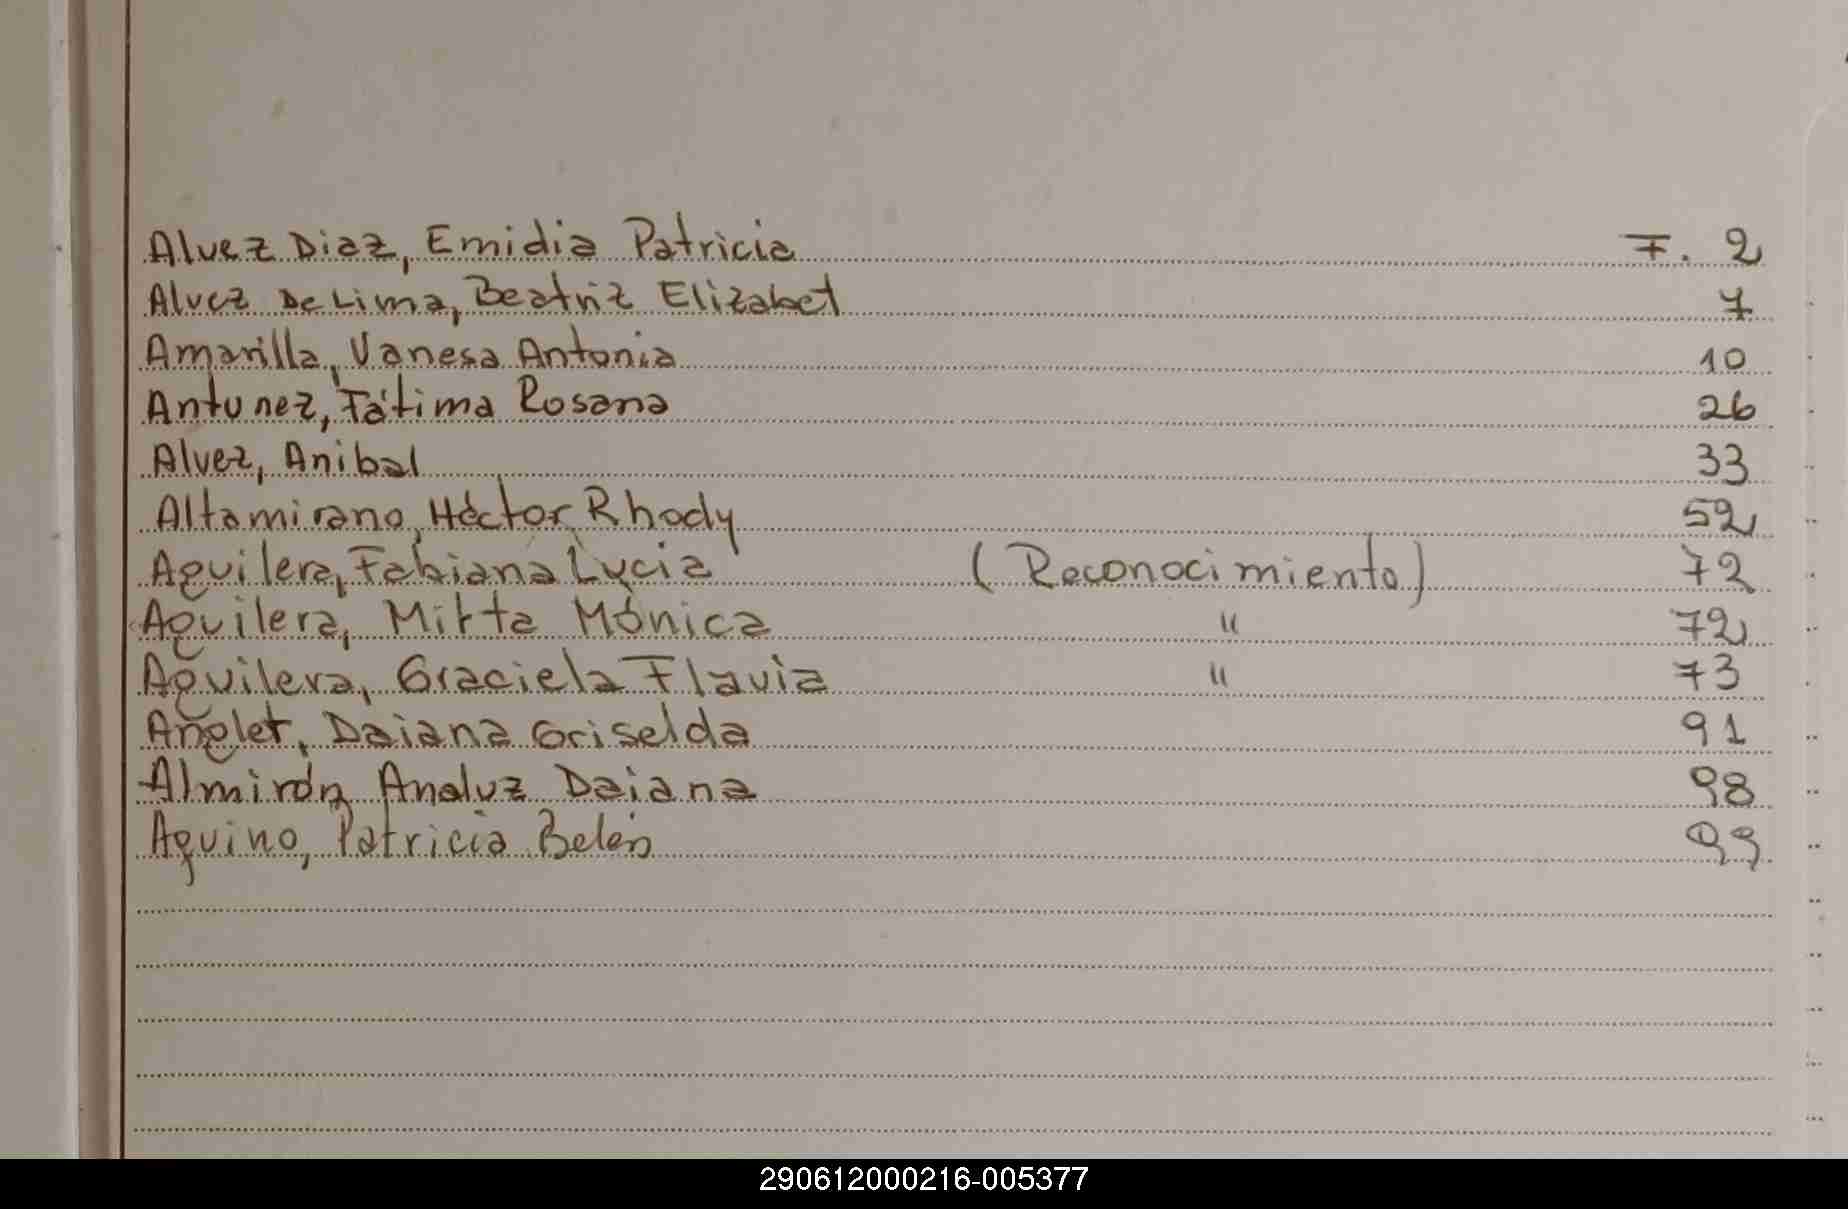 Alvez Diaz, Emidia Patricia F. 2
Alvez De Lima, Beatriz Elizabet 7
Amarilla, Vanesa Antonia 10
Antunez, Fátima Rosana 26
Alvez, Anibal 33
Altamirano, Héctor Rhody 52
Aguilera, Fabiana Lucia (Reconocimiento) 72
Aguilera, Mirta Mónica " 72
Aguilera, Graciela Flavia " 73
Anglet, Daiana Griselda 91
Almirón Analuz Daiana 98
Aquino, Patricia Belén 99
290612000216-005377